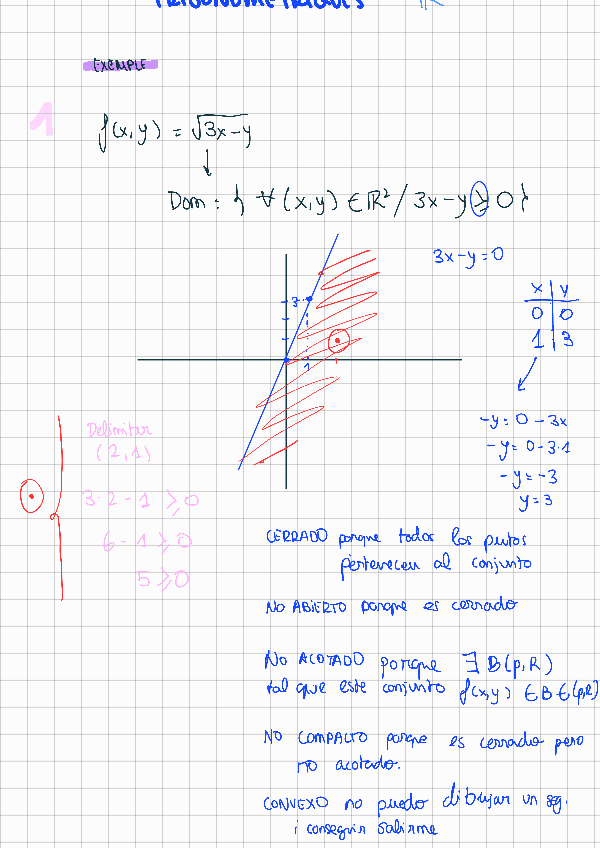 TRIGONOMÈTRIQUES
EXEMPLE
1
f(x,y) = √3x-y
↓
Dom: { ∀ (x,y) ∈ ℝ² / 3x-y ≥ 0 }
3x-y=0
x | y
0 | 0
1 | 3
3
1
-y = 0 - 3x
-y = 0-3·1
-y = -3
y = 3
Delimitar
(2,1)
3·2-1 ≥ 0
6-1 ≥ 0
5 ≥ 0
CERRADO porque todos los putos
pertenecen al conjunto
NO ABIERTO porque es cerrado
NO ACOTADO porque ∃ B(p,R)
tal que este conjunto f(x,y) ∈ B ∈ (p,R)
NO COMPACTO porque es cerrado pero
no acotado.
CONVEXO no puedo dibujar un seg.
i conseguir salirme